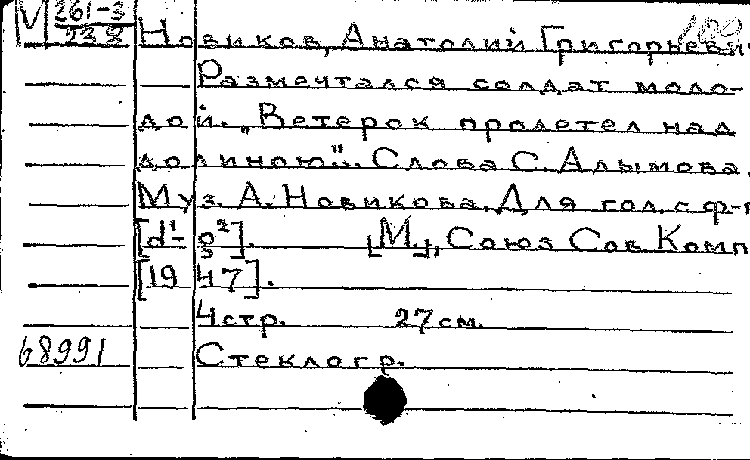 V 261-3
938 Новиков, Анатолий Григорьеви
Размечтался солдат моло-
дой. „Ветерок пролетел над
долиною". Слова С. Алымова.
Муз. А. Новикова. Для гол. с ф-п
[d¹-g²]. [М.], Союз Сов Комп
[1947].
4 стр. 27 см.
68991 Стеклогр.